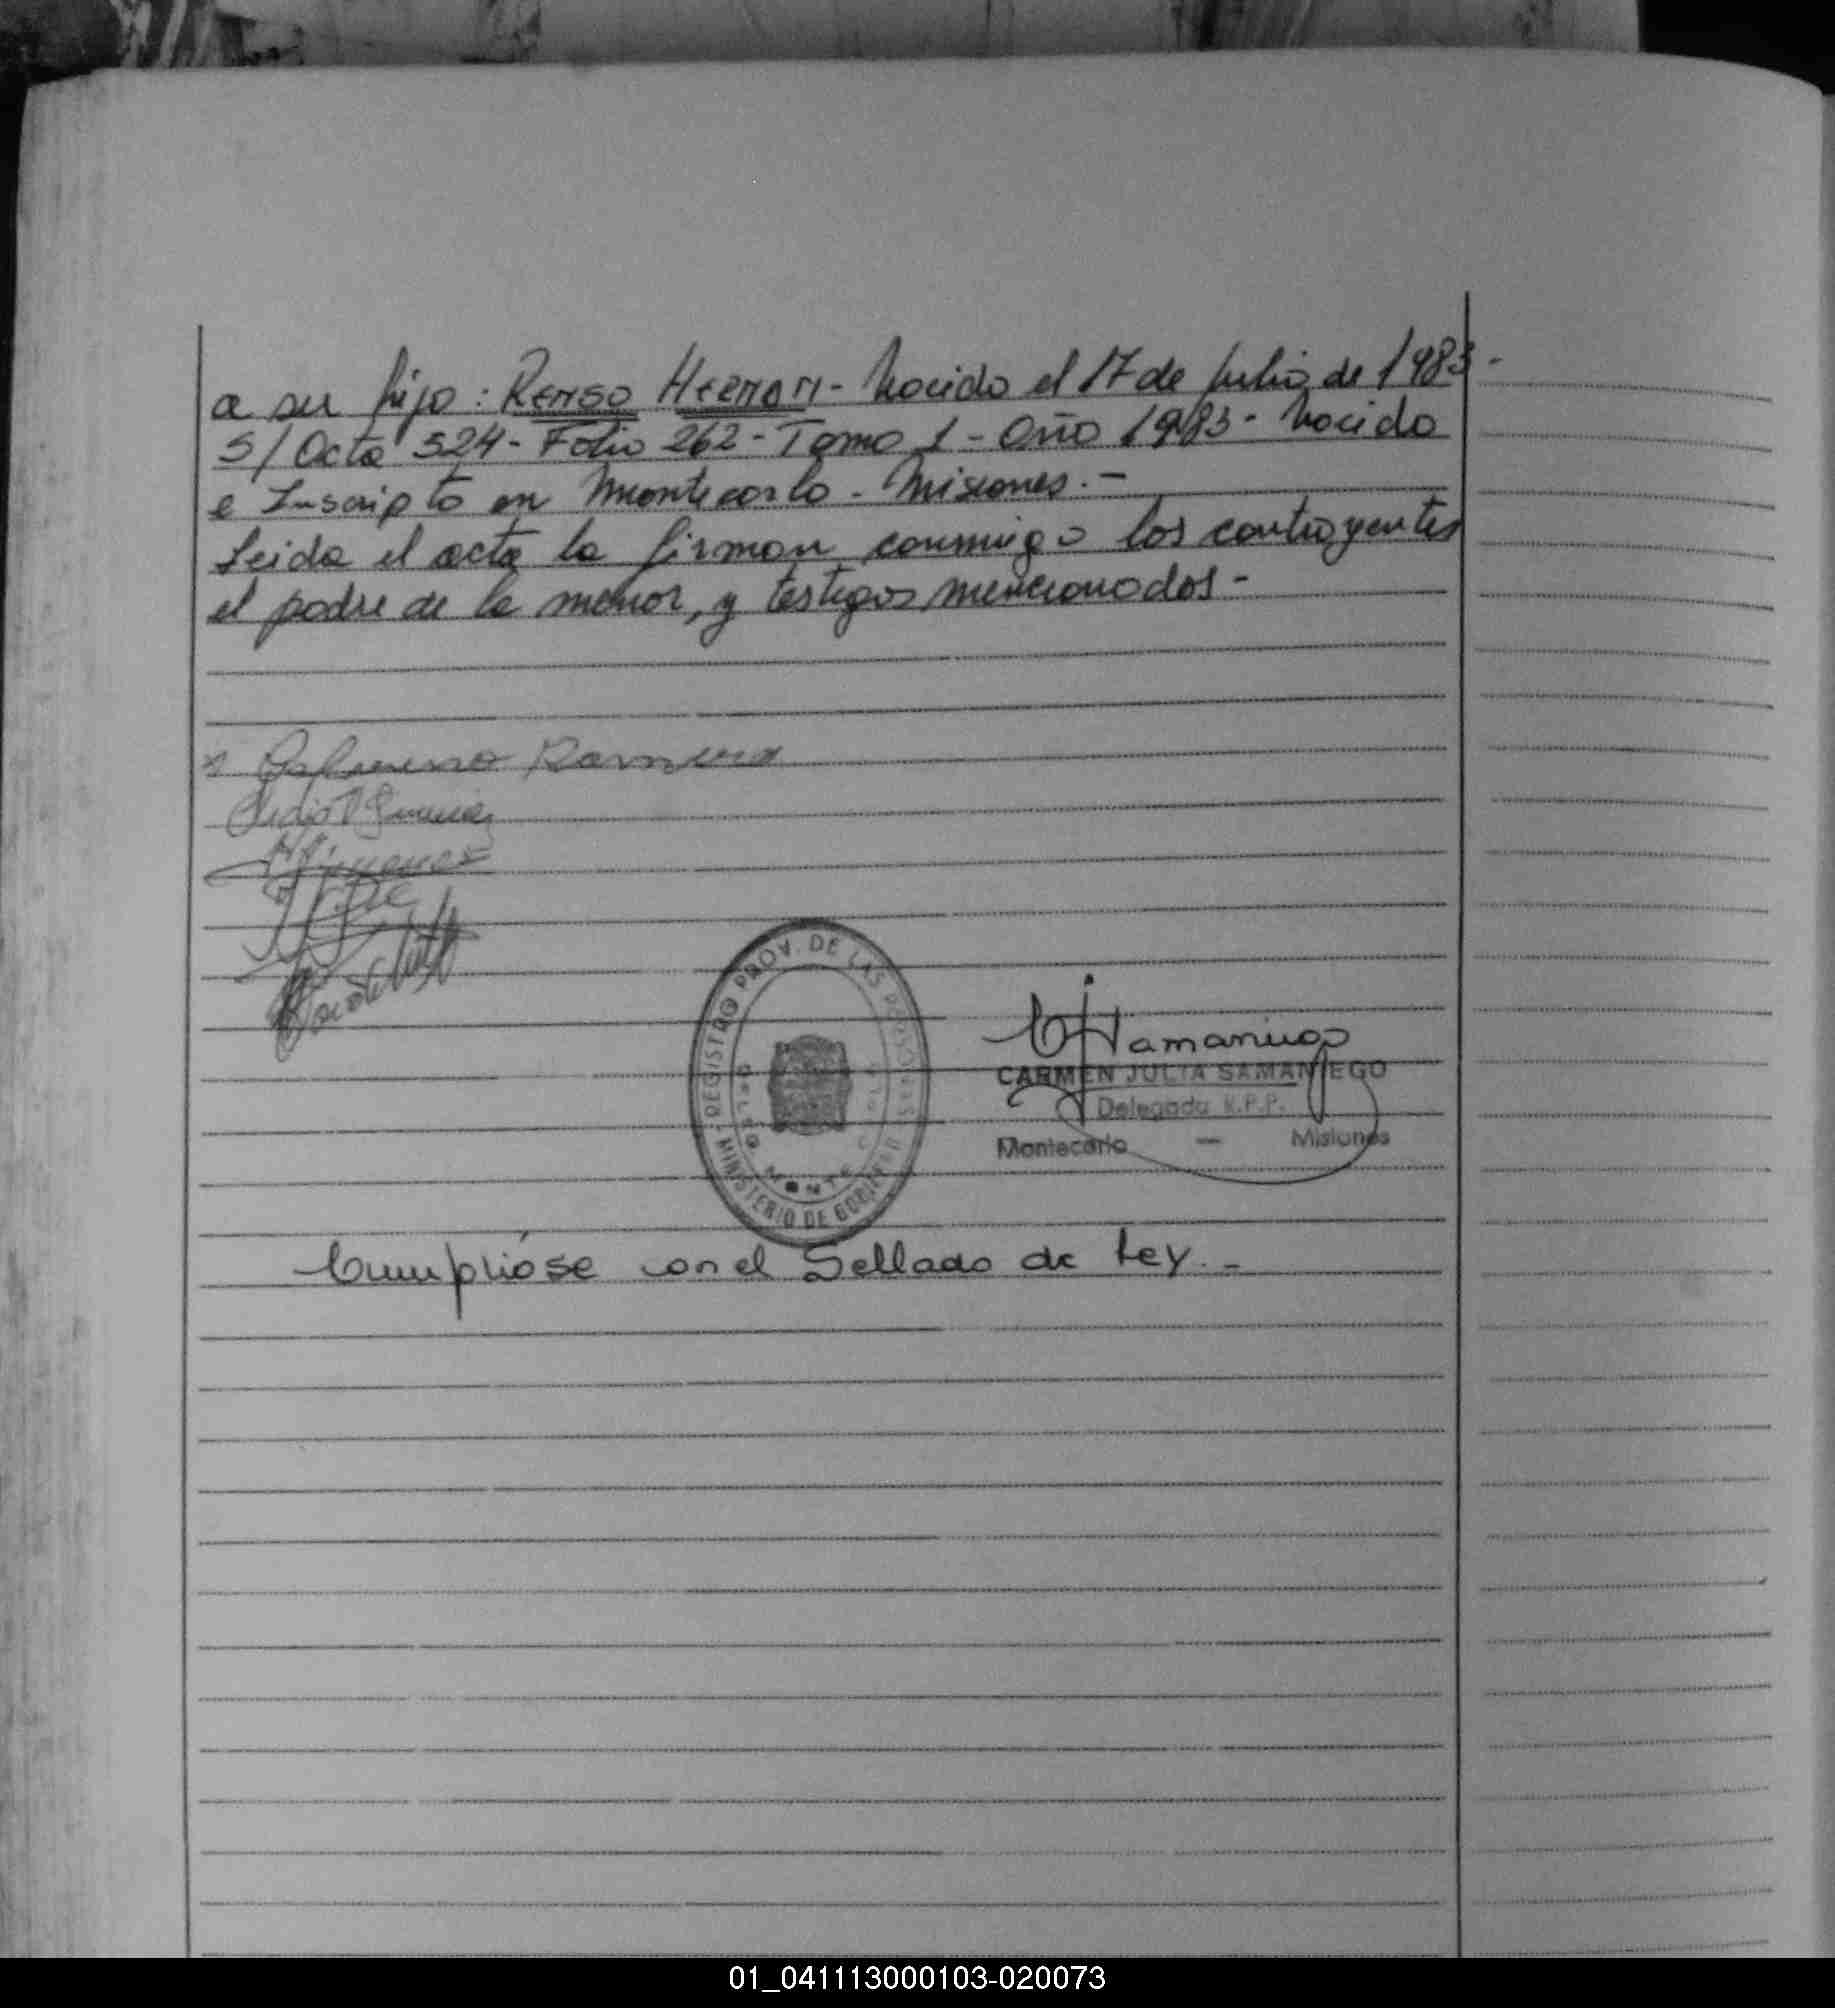 a su hijo: Renso Hernan - Nacido el 17 de Julio de 1983 -
S/ Acta 524 - Folio 262 - Tomo 1 - Año 1983 - Nacido
e Inscripto en Montecarlo - Misiones. -
Leida el acta la firman conmigo los contrayentes
el padre de la menor, y testigos mencionados -
Ramirez
REGISTRO PROV. DE LAS PERSONAS
MINISTERIO DE GOBIERNO
CJSamaniego
CARMEN JULIA SAMANIEGO
Delegada R.P.P.
Montecarlo — Misiones
Cumplióse con el Sellado de Ley. -
01_041113000103-020073